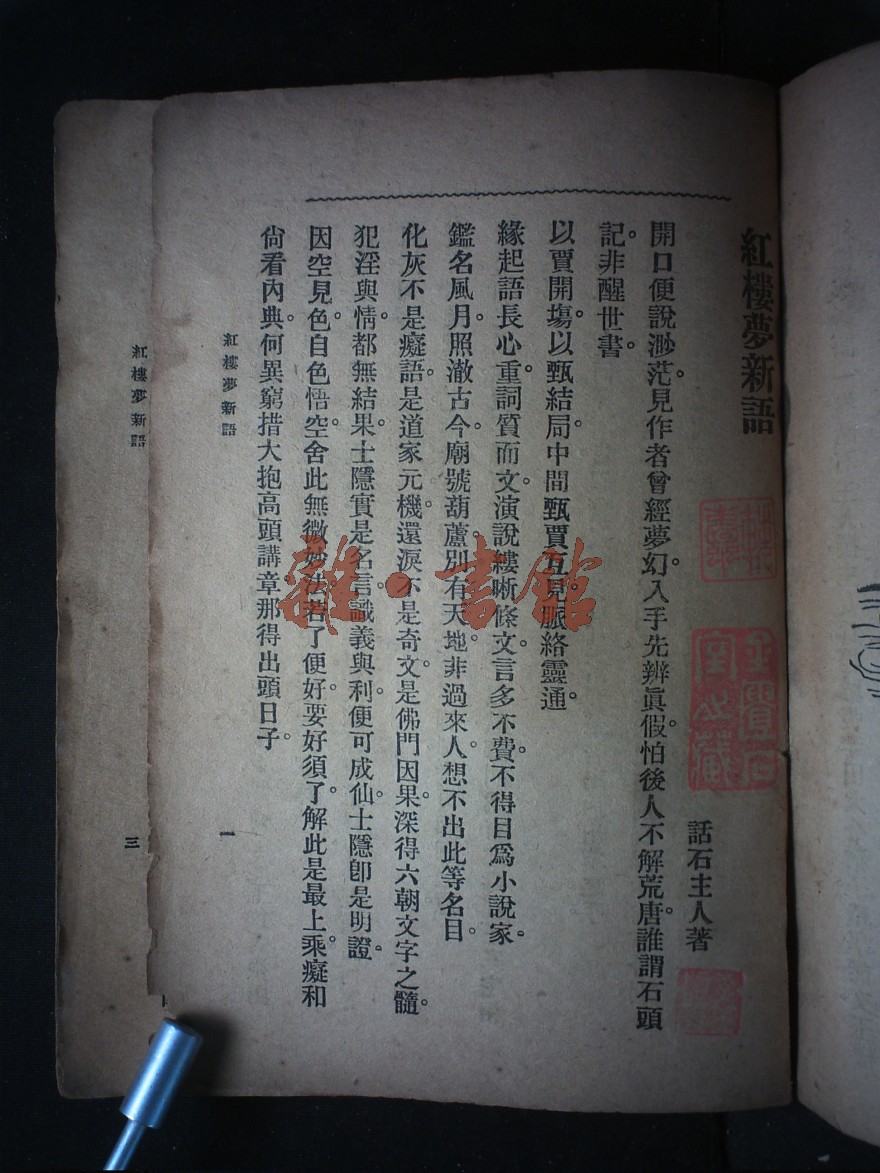 紅樓夢新語
話石主人著
開口便說渺茫。見作者曾經夢幻。入手先辨眞假。怕後人不解荒唐。誰謂石頭
記。非醒世書。
以賈開塲。以甄結局。中間甄賈互見。脈絡靈通。
緣起語長心重。詞質而文。演說縷晰條文。言多不費。不得目爲小說家。
鑑名風月。照澈古今。廟號葫蘆。別有天地。非過來人。想不出此等名目。
化灰不是癡語。是道家元機。還淚不是奇文。是佛門因果。深得六朝文字之髓。
犯淫與情。都無結果。士隱實是名言。識義與利。便可成仙。士隱卽是明證。
因空見色。自色悟空。舍此無微妙法。若了便好。要好須了。解此是最上乘。癡和
尙看內典。何異窮措大抱高頭講章。那得出頭日子。
紅樓夢新語
一
紅樓夢新語
三
雜·書館
室之藏